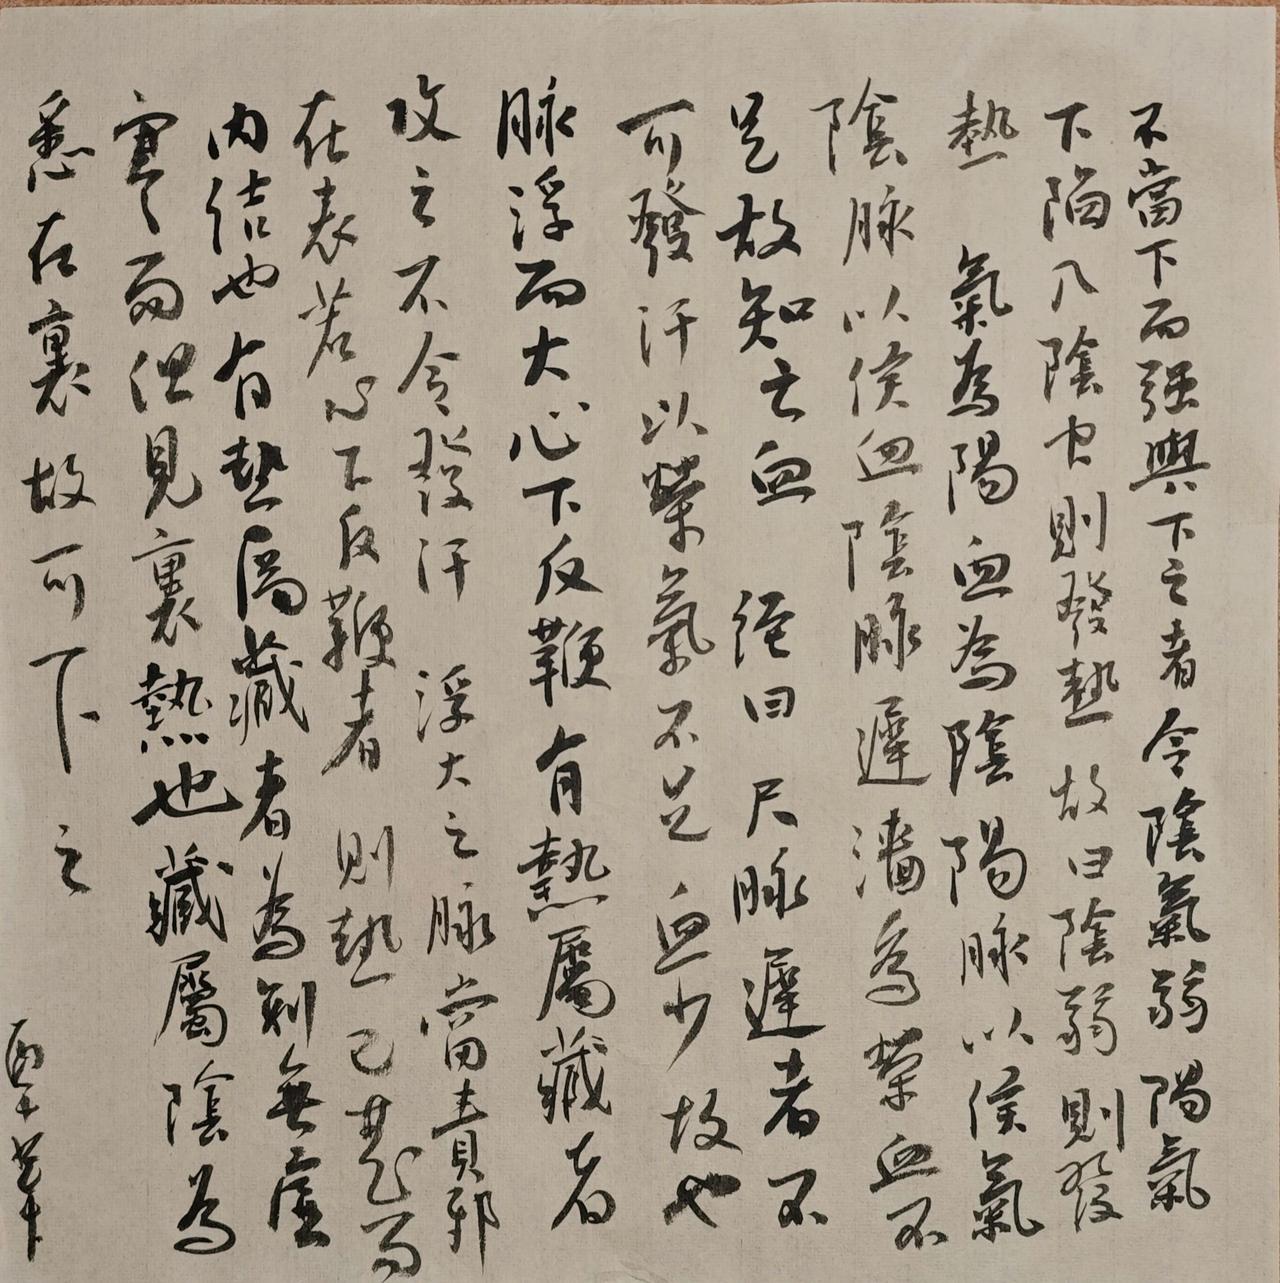 不當下而强與下之者令陰氣弱陽氣
下陷入陰中則發熱故曰陰弱則發
熱 氣為陽血為陰陽脉以候氣
陰脉以候血陰脉遲濇為榮血不
足故知亡血 經曰尺脉遲者不
可發汗以榮氣不足血少故也
脉浮而大心下反鞕有熱屬藏者
攻之不令發汗 浮大之脉當責邪
在表若心下反鞕者則熱已甚而
內結也有熱屬藏者為別無虛
寒而但見裏熱也藏屬陰為
悉在裏故可下之